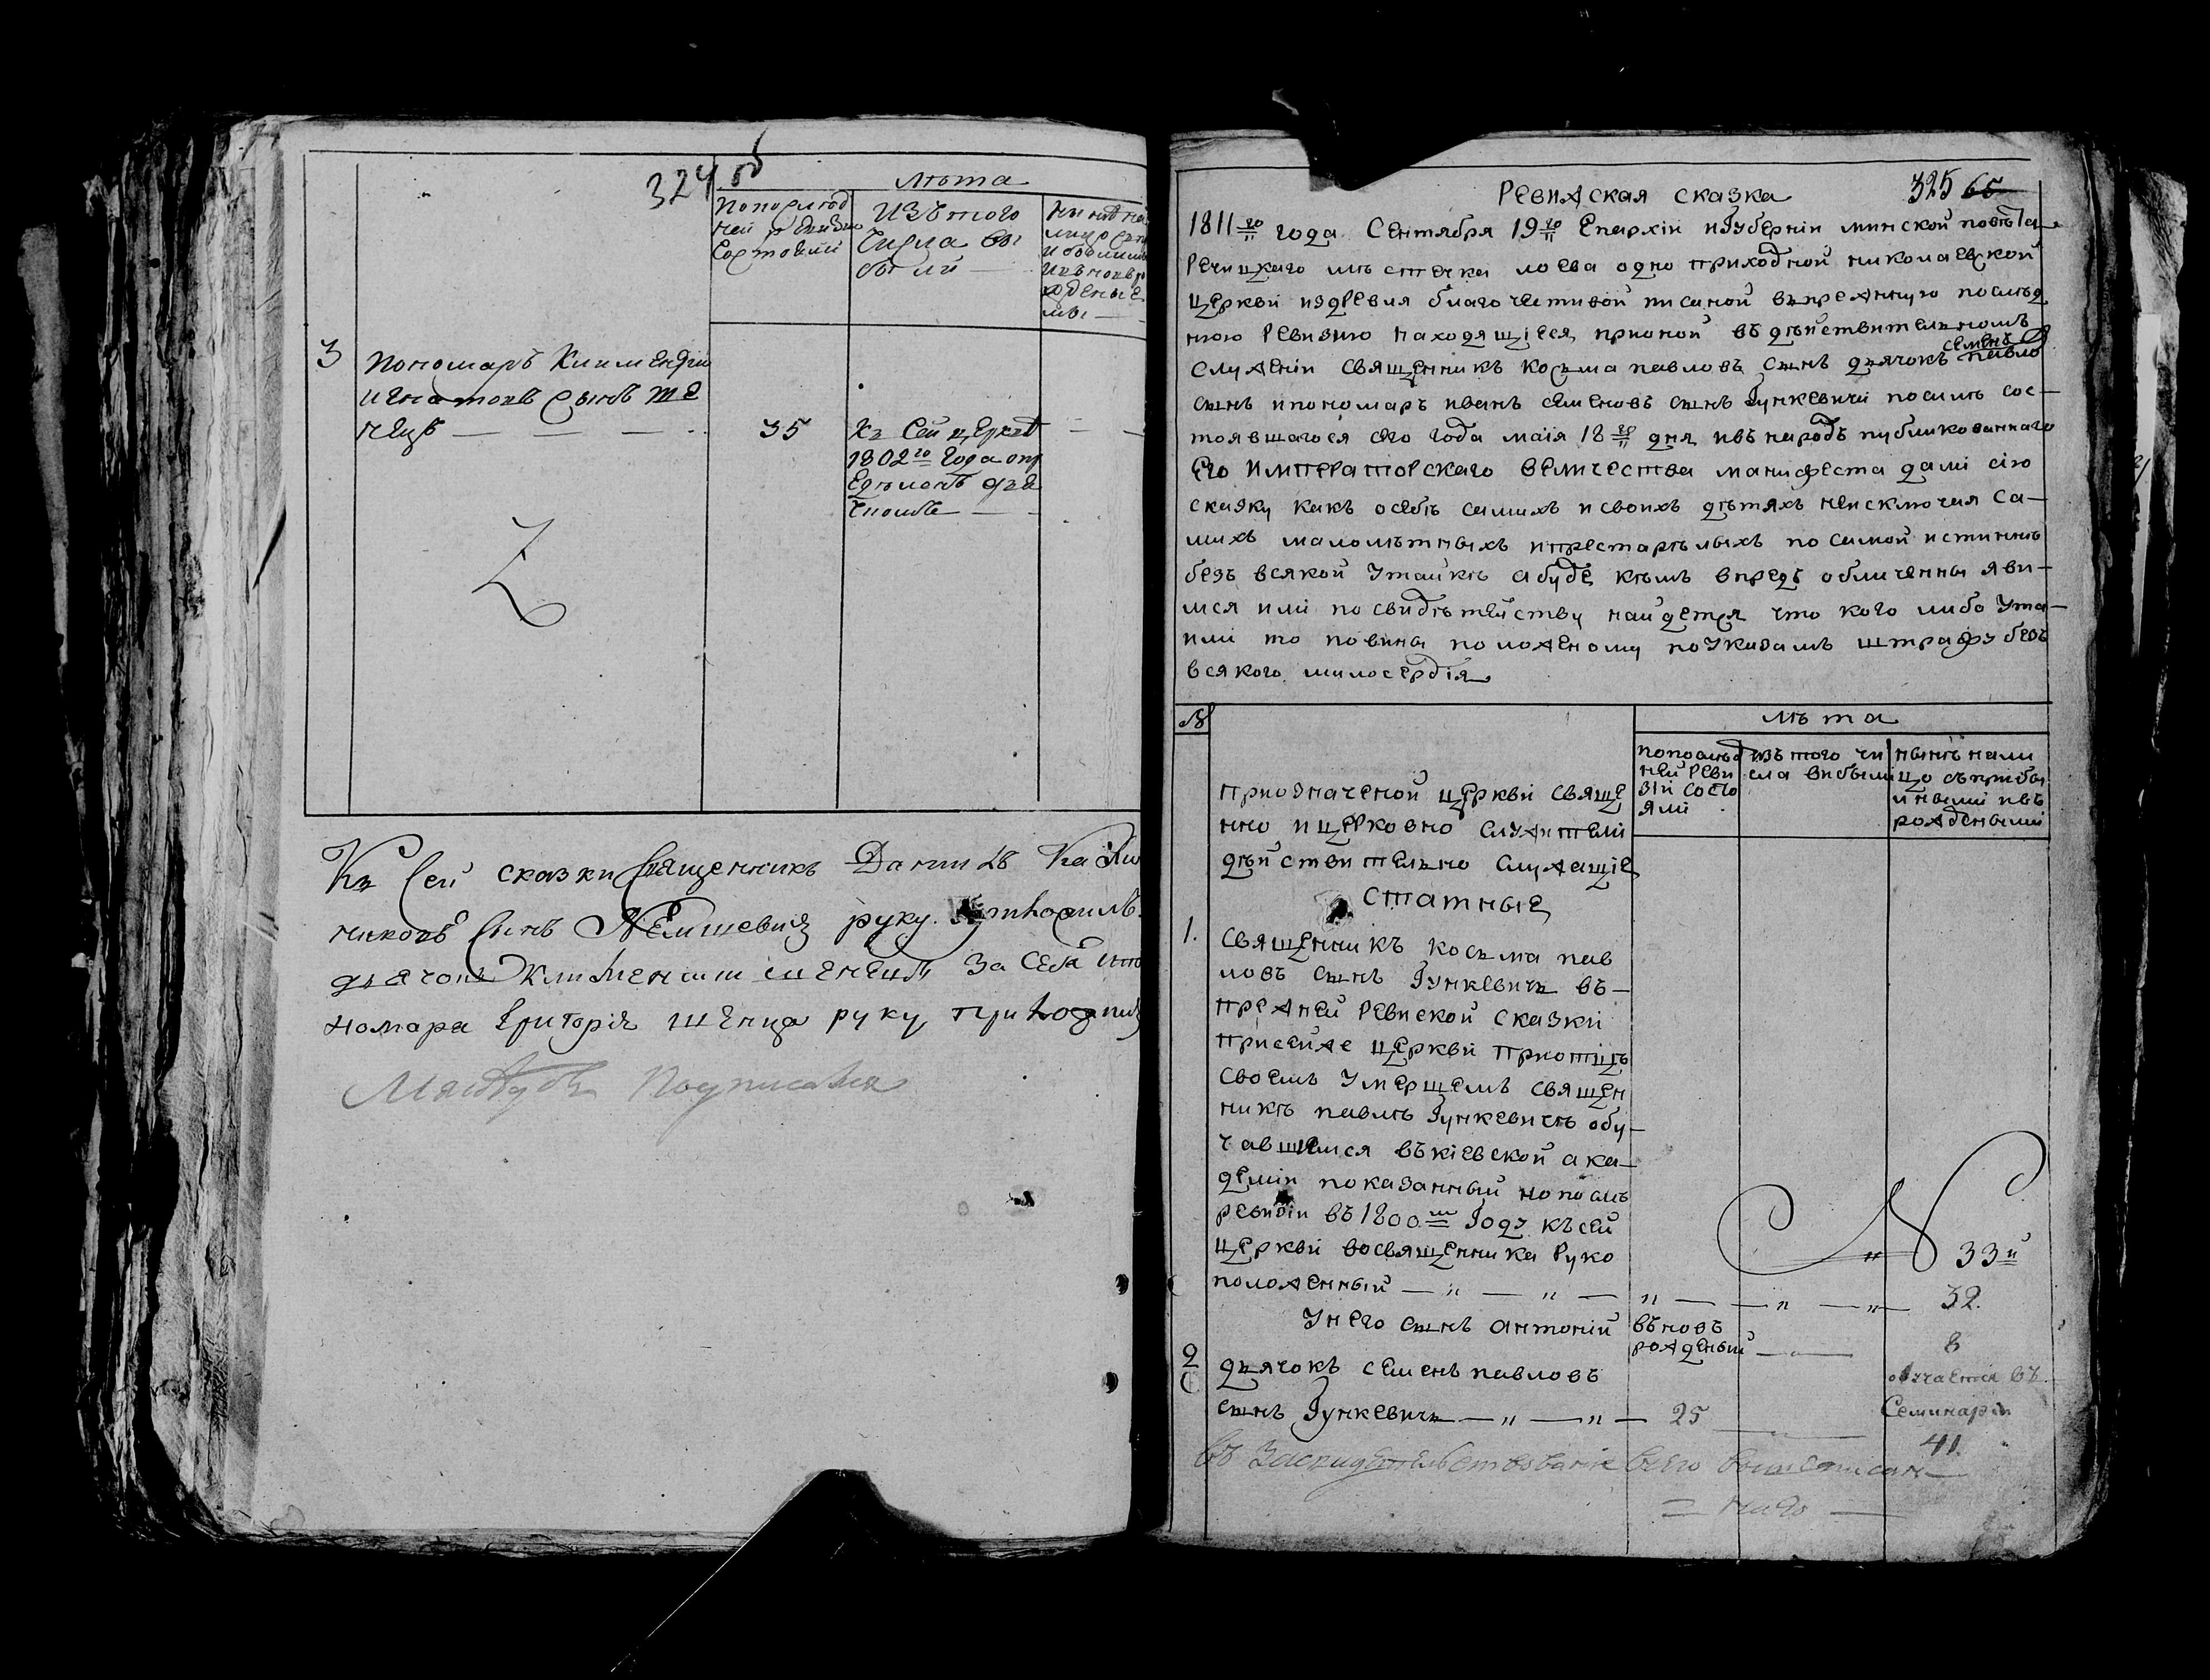 324 об
лѣта
Попослѣд
ней ревизии
Состояли
Изъ того
Числа вы
были —
3
Пономаръ Климентий
игнатовъ сынъ ше
нецъ — — — -
35
Къ Сей церквѣ
1802го Года опр
Еделенъ дья
чкомъ — —
Къ Сей сказки Священникъ Даниилъ
сынъ руку приложилъ
дьячокъ за Себя и по
номара Григорія шенца руку приложилъ
Подписался
РЕВИЖСКАЯ СКАЗКА
325 65
1811го года Сентября 19го Епархіи и Губерніи минской повѣта
Речицкаго мѣстечка лоева одно приходной николаевской
церкви издревля благочестивой писаной въ прежнюю послѣд
нюю Ревизію Находящіеся прионой въ дѣйствителномъ
семенъ
служеніи Священникъ Косьма павловъ сынъ дьячокъ павло
сынъ и пономаръ иванъ семеновъ сынъ Гункевичи по силѣ сос—
тоявшагося сего года маія 18го дня ивъ народъ публикованнаго
Его ИМПЕРАТОРСКАГО Величества манифеста дали сію
сказку какъ осебѣ самихъ и своихъ дѣтяхъ неисключая са—
михъ малолѣтныхъ и престарѣлыхъ по самой истиннѣ
безъ всякой Утайкѣ абуде кѣмъ впредъ обличенны яви—
мся или посвидѣтейству найдется что кого либо Ута—
или то повины положеному по Указамъ штрафу безъ
всякого милосердія
№
лѣта
попослѣд
ней Реви
зіи состо
яли
изъ того чи
сла выбыли
нынѣ нали
цо съ прибы
лными ивъ
рождеными
приозначеной церкви Свяще
нно и церковно служители
дѣйствителъно служащіе
Статные
1.
Священникъ косьма пав
ловъ сынъ Гункевичъ въ—
прежней Ревиской сказки
присейже церкви приотцѣ
своемъ умершемъ священ
никѣ павлѣ Гункевичѣ обу—
чавшемся въ кіевской ака—
деміи показанный но послѣ
ревизіи въ 1800м Году къ сей
церкви восвященника Руко
положенный — " — " — " — — " — " — 32.
33й
У него сынъ антоній въновъ
рожденый — — 8
обучается въ
Семинаріи
2
дьячокъ семенъ павловъ
сынъ Гункевичъ — " — " — 25 — 41.
Въ Засвидетельствованіе Всего вышеписан—
= наго —